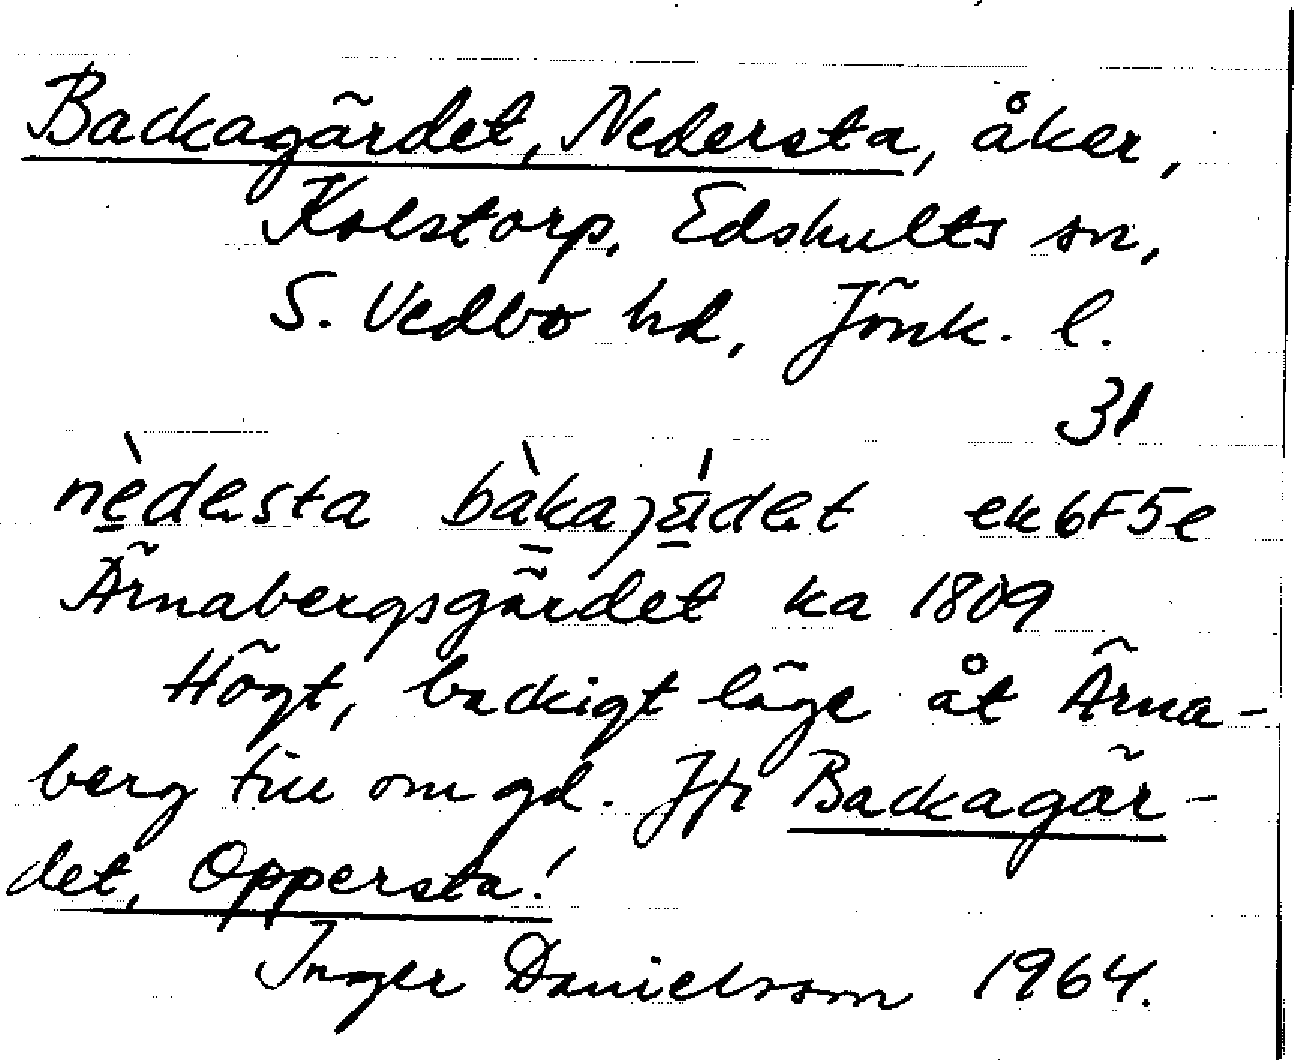 Backagärdet, Nedersta, åker,
Kolstorp, Edshults sn,
S. Vedbo hd, Jönk. l.
31
nèdesta bàkajädet ek6F5e
Ärnabergsgärdet ka 1809
Högt, backigt läge åt Ärna-
berg till om gd. Jfr Backagär-
det, Oppersta!
Inger Danielsson 1964.